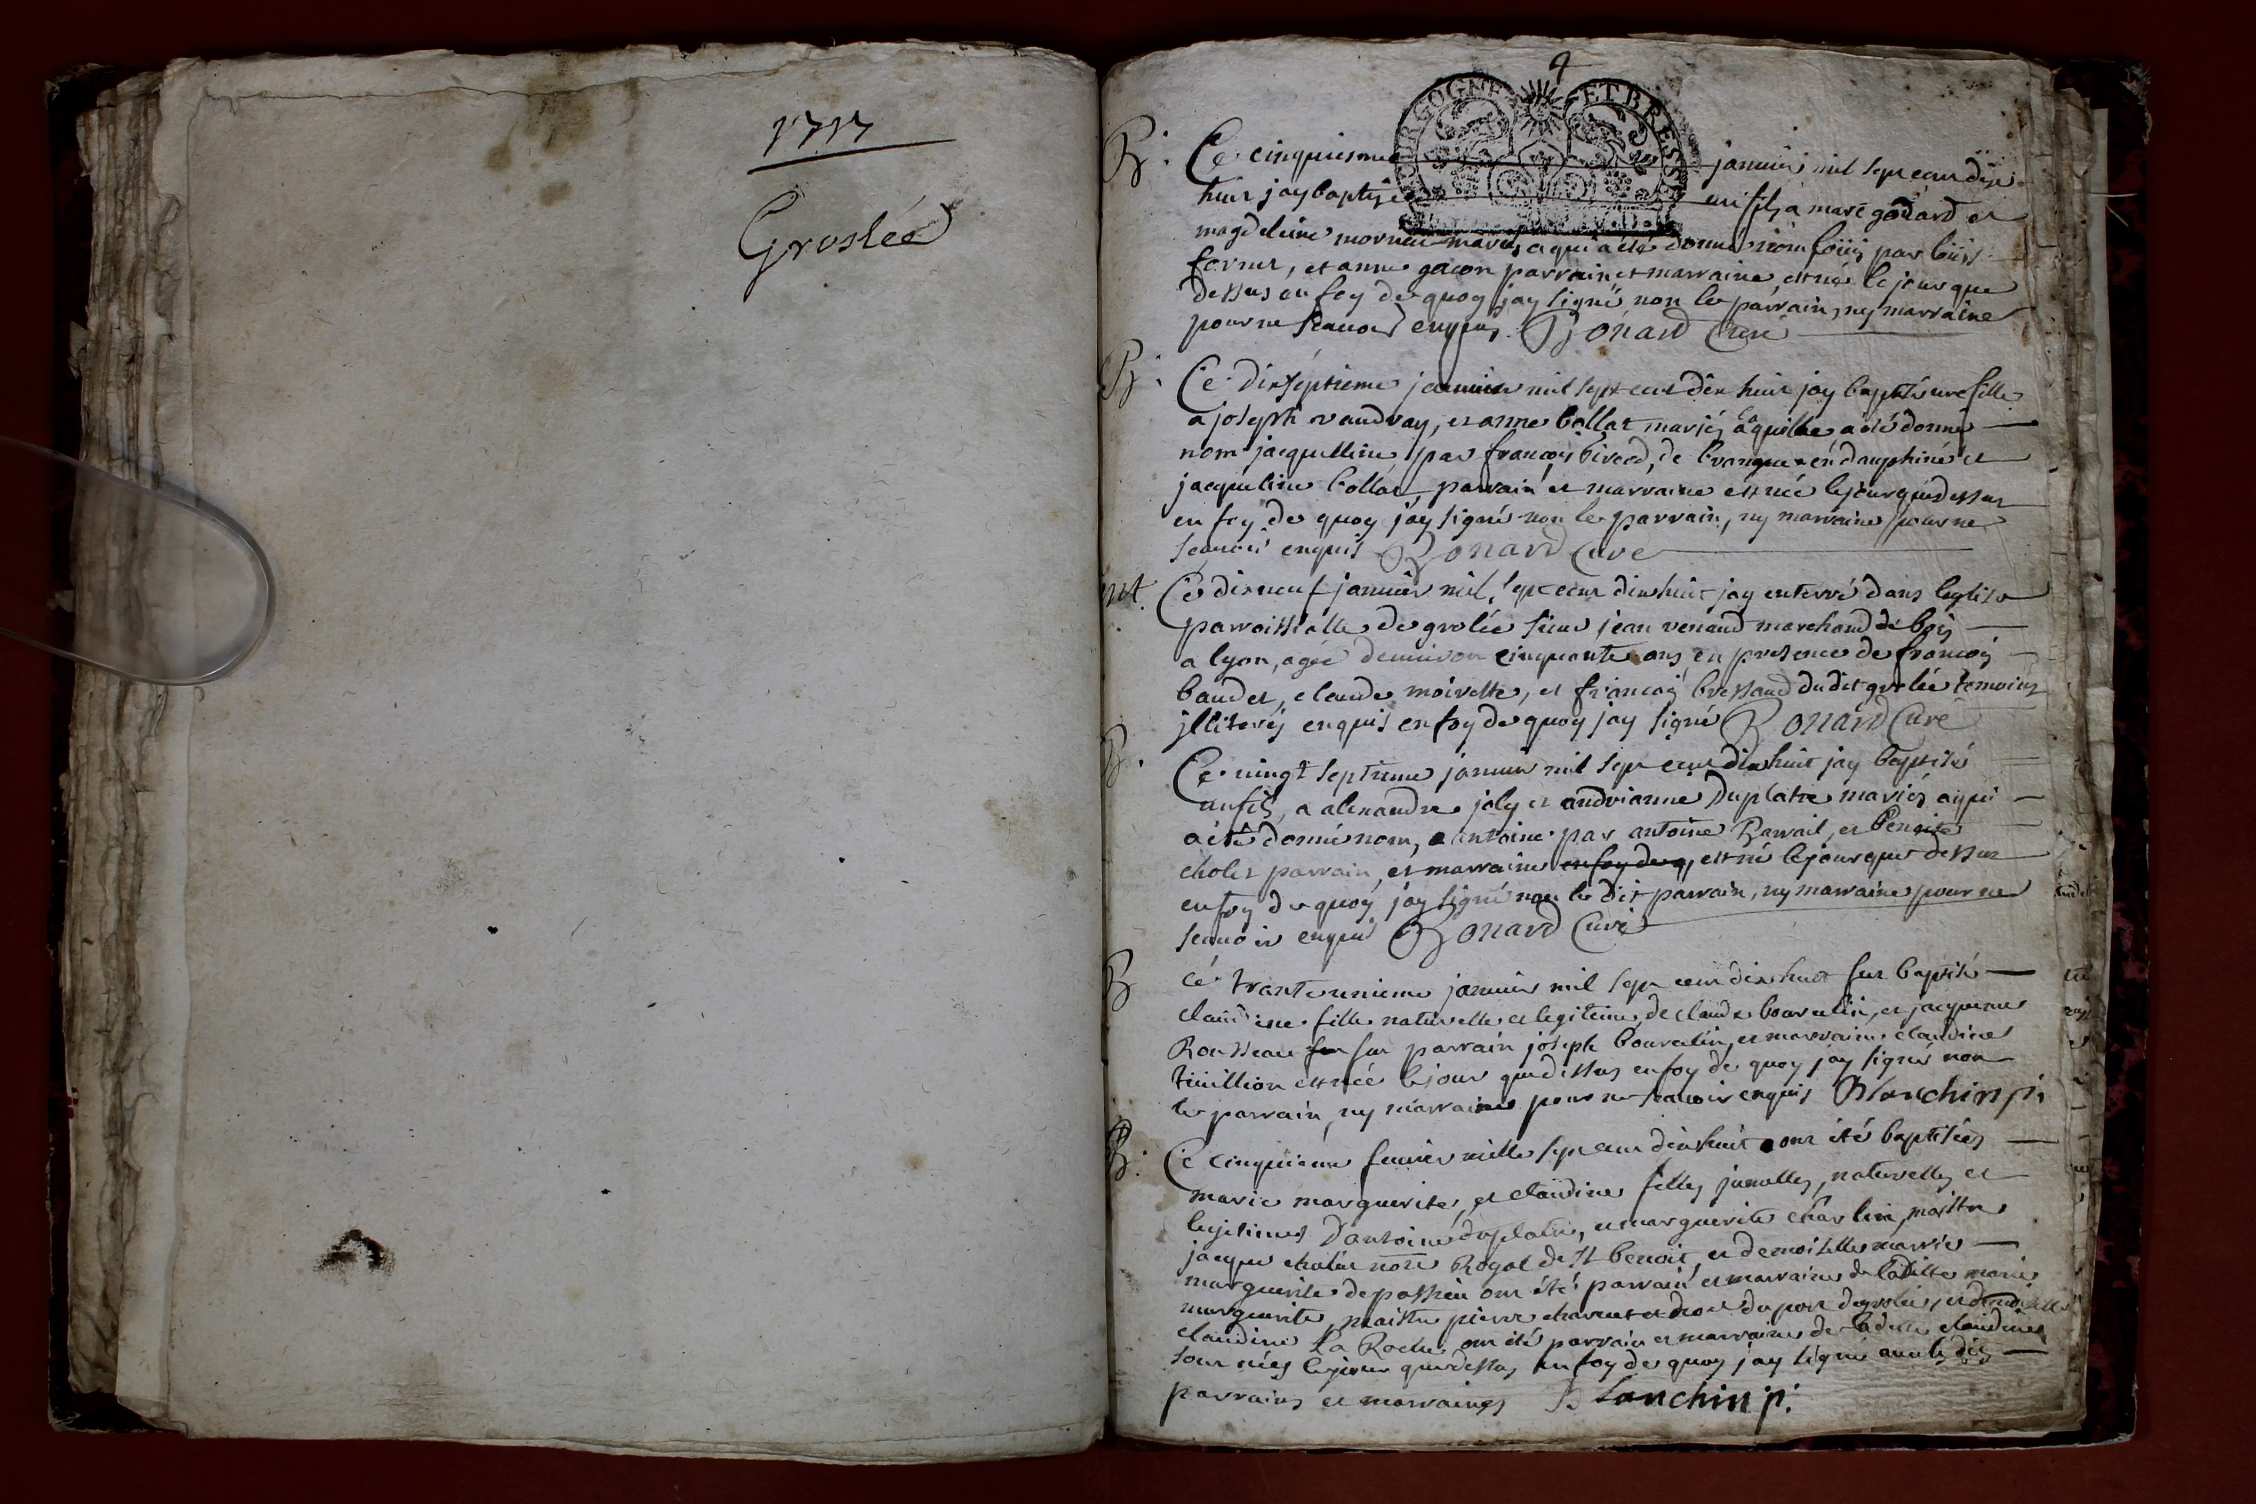 1717
Groslée
BOURGOGNE ET BRESSE
B: Ce cinquiesme janvier mil sept cent dix
huit jay baptizé un fils à marc godard et
magdeleine mornieu mariés a qui a été donné nom louis par louis
fornier, et anne gacon parrain et marraine, est né le jour que
dessus en foy de quoy jay signé non le parrain, ny marraine
pour ne scavoir enquis. Bonard Curé
B: Ce dixseptieme janvier mil sept cent dix huit jay baptisé une fille
a joseph vaudray, et anne bollat mariés a laquelle a été donné
nom jacquelline par francois de branque en dauphiné et
jacqueline bollat, parrain et marraine est née le jour que dessus
en foy de quoy jay signé non le parrain, ny marraine pour ne
scavoir enquis Bonard Curé
nt. Ce dixneuf janvier mil sept cent dix huit jay enterré dans leglise
parroissialle de grolée sieur jean venand marchand de bois
a lyon, agée denviron cinquante ans, en presence de francois
baudet, claude moirette, et francois bressand dudit grolée temoins
illiterés enquis en foy de quoy jay signé Bonard Curé
B. Ce vingt septieme janvier mil sept cent dix huit jay baptisé
un fils, a alexandre joly et andrianne Duplatre mariés a qui
a été donné nom, antoine par antoine Barrail, et benoite
cholet parrain, et marraine en foy de q, est né le jour que dessus
en foy de quoy jay signé non le dit parrain, ny marraine pour ne
scavoir enquis Bonard Curé
B cé trante unieme janvier mil sept cent dix huit fut baptisé
claudine fille naturelle et legitime, de claude bourcelin, et jacquême
Rousseau fut parrain joseph bourcelin, et marraine claudine
est née le jour que dessus en foy de quoy jay signé non
le parrain, ny marraine pour ne scavoir enquis Blanchin p.
B: Ce cinquieme fevrier mille sept cent dix huit ont été baptisées
marie marguerite, et claudine filles jumelles, naturelles et
legitimes D'antoine duplatre, et marguerite charlin, maistre
jacque cholet nore Royal de St benoit, et demoiselle marrie
marguerite de passieu ont été parrain et marraine de laditte marie
marguerite, maistre pierre du port de grolée, et demoiselle
claudine La Roche ont été parrain et marraine de laditte claudine
sont nées le jour que dessus en foy de quoy jay signé avec lesdits
parrains et marraines Blanchin p.